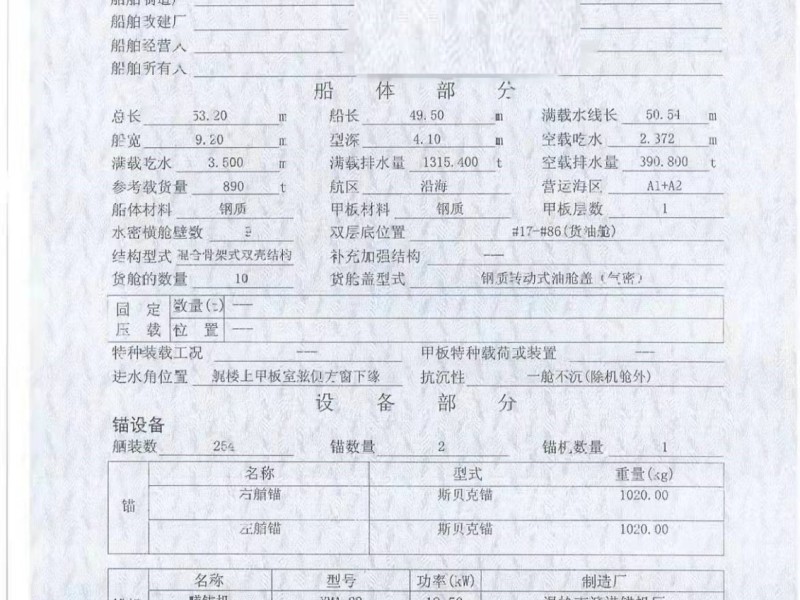 船舶改建厂
船舶经营人
船舶所有人
船 体 部 分
总长 53.20 m 船长 49.50 m 满载水线长 50.54 m
船宽 9.20 m 型深 4.10 m 空载吃水 2.372 m
满载吃水 3.500 m 满载排水量 1315.400 t 空载排水量 390.800 t
参考载货量 890 t 航区 沿海 营运海区 A1+A2
船体材料 钢质 甲板材料 钢质 甲板层数 1
水密横舱壁数 双层底位置 #17-#86(货油舱)
结构型式 混合骨架式双壳结构 补充加强结构 ---
货舱的数量 10 货舱盖型式 钢质转动式油舱盖(气密)
固 定 数量(t) ---
压 载 位 置 ---
特种装载工况 --- 甲板特种载荷或装置 ---
进水角位置 艉楼上甲板室舷侧方窗下缘 抗沉性 一舱不沉(除机舱外)
设 备 部 分
锚设备
舾装数 254 锚数量 2 锚机数量 1
名称 型式 重量(kg)
锚
右艏锚 斯贝克锚 1020.00
左艏锚 斯贝克锚 1020.00
名称 型号 功率(kW) 制造厂